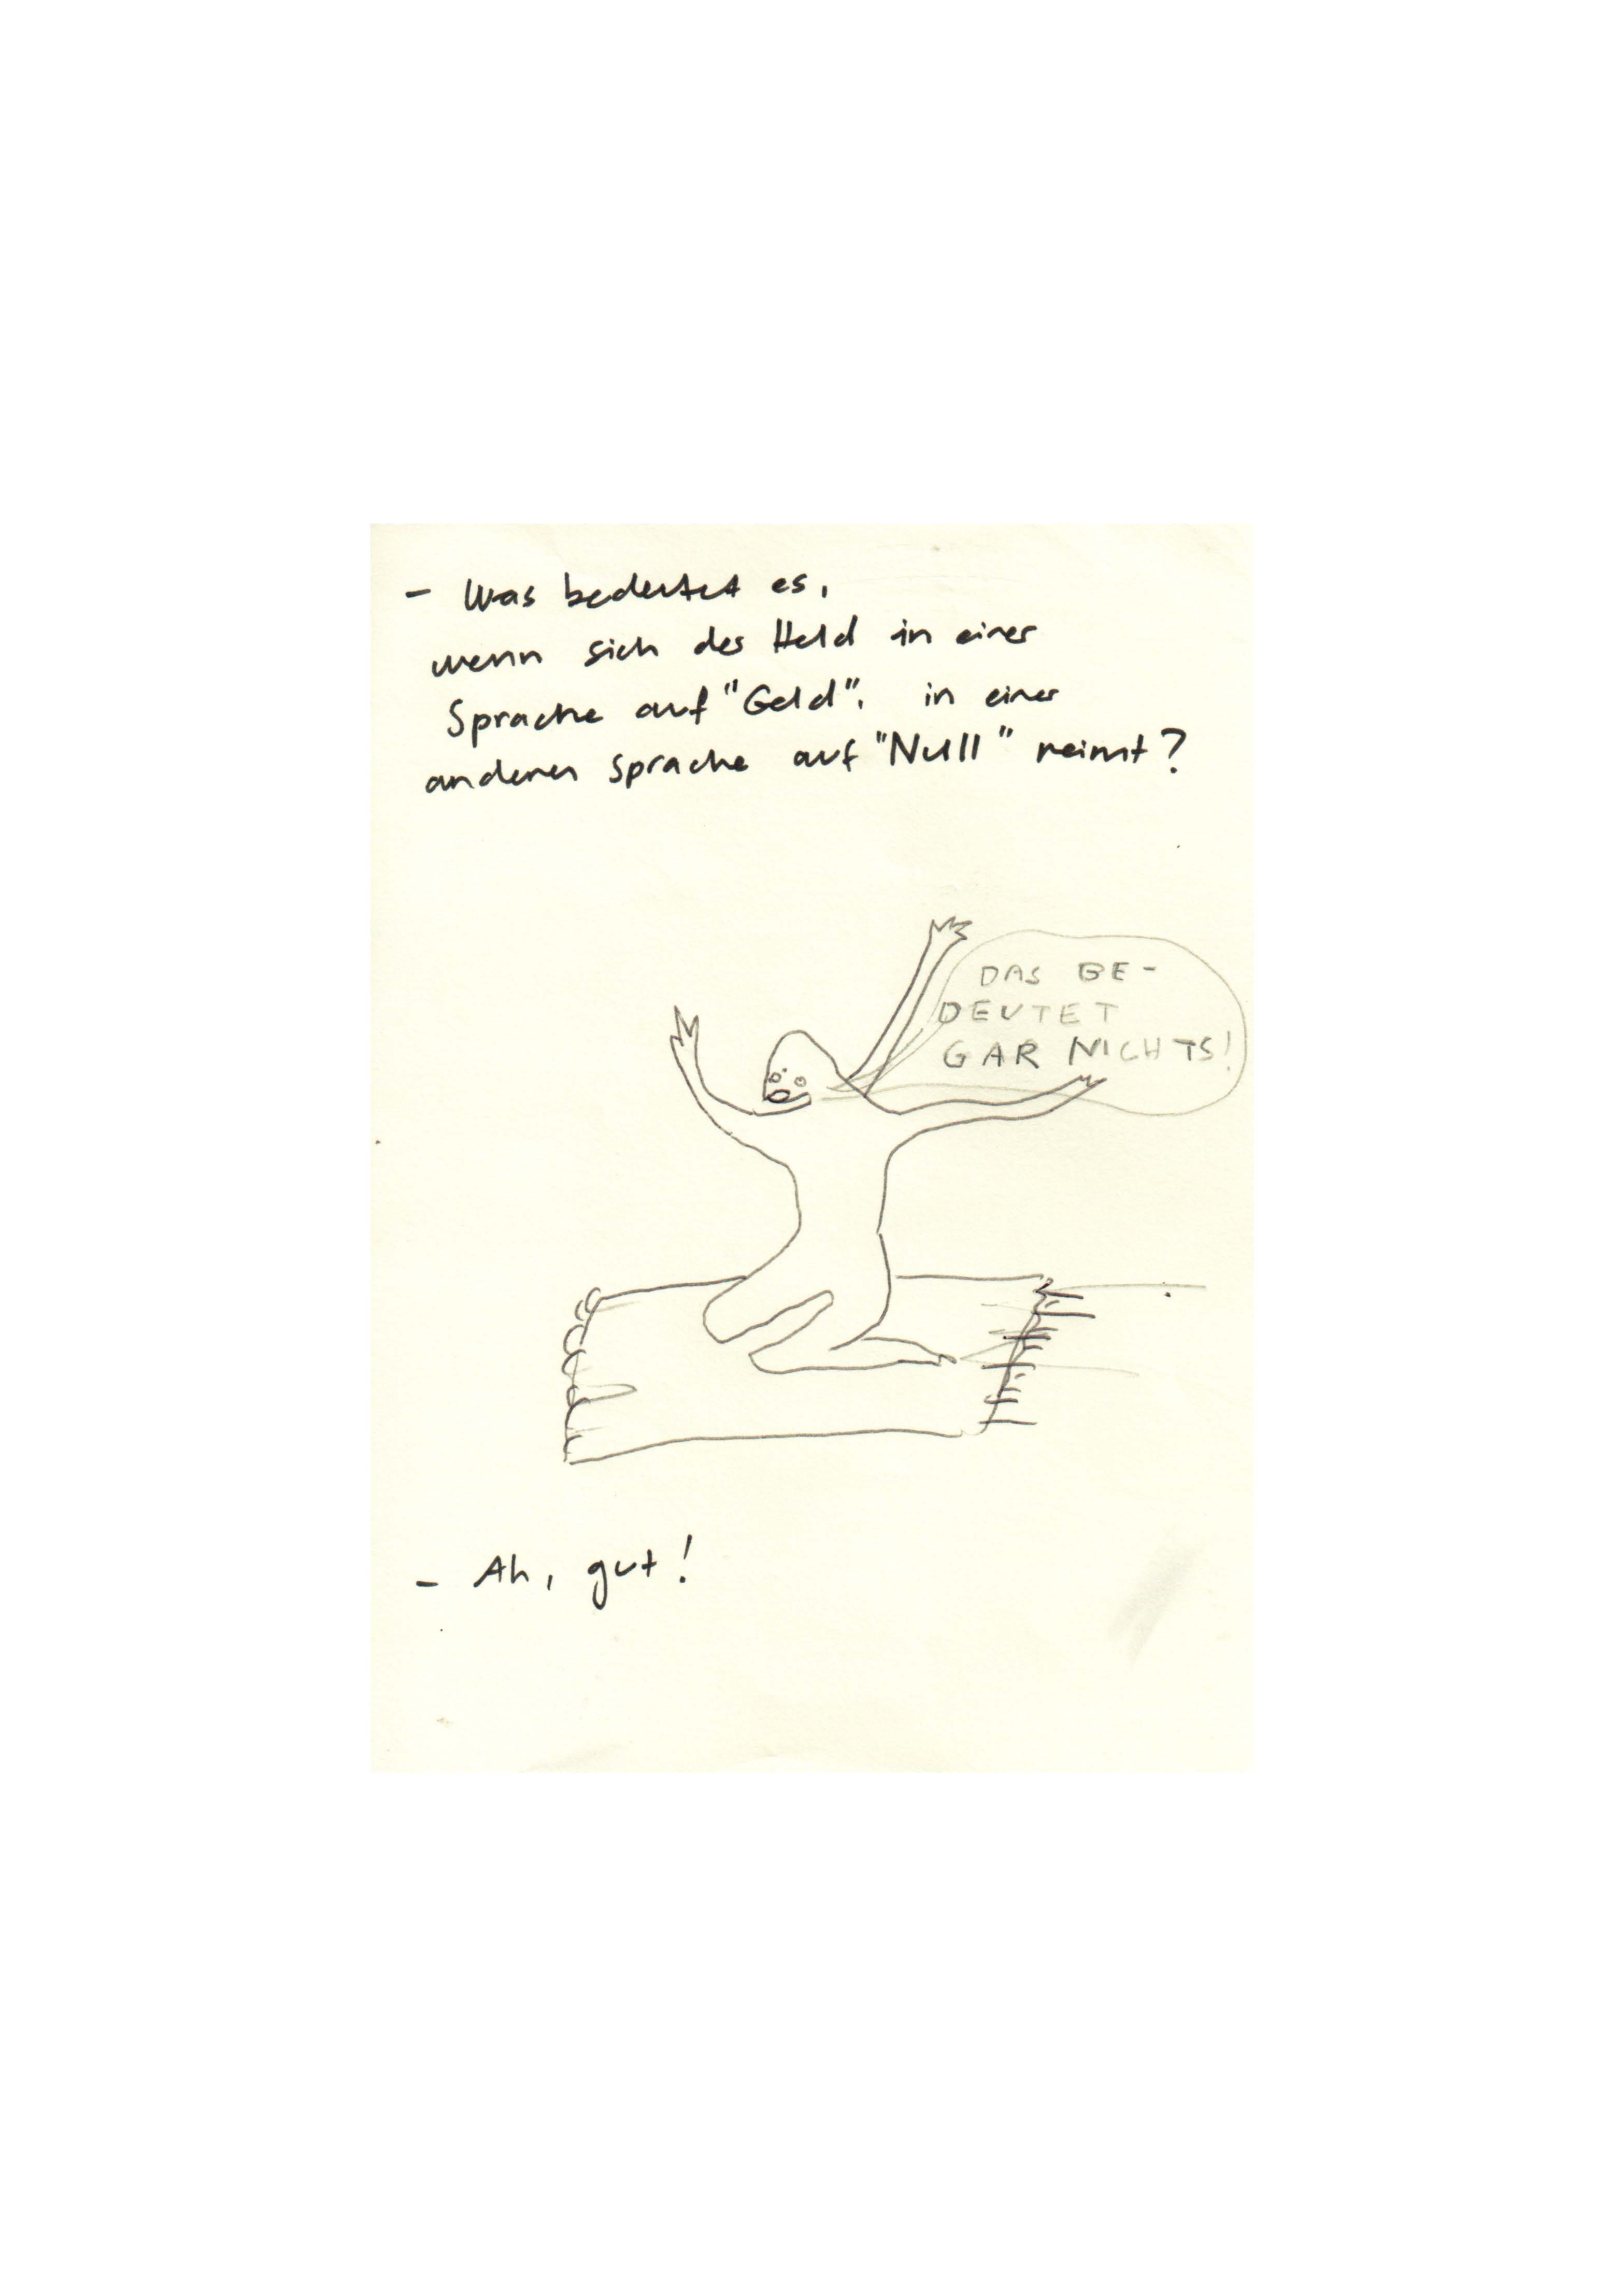 - Was bedeutet es,
wenn sich der Held in einer
Sprache auf "Geld", in einer
anderen Sprache auf "Null" reimt?
DAS BE-
DEUTET
GAR NICHTS!
- Ah, gut!